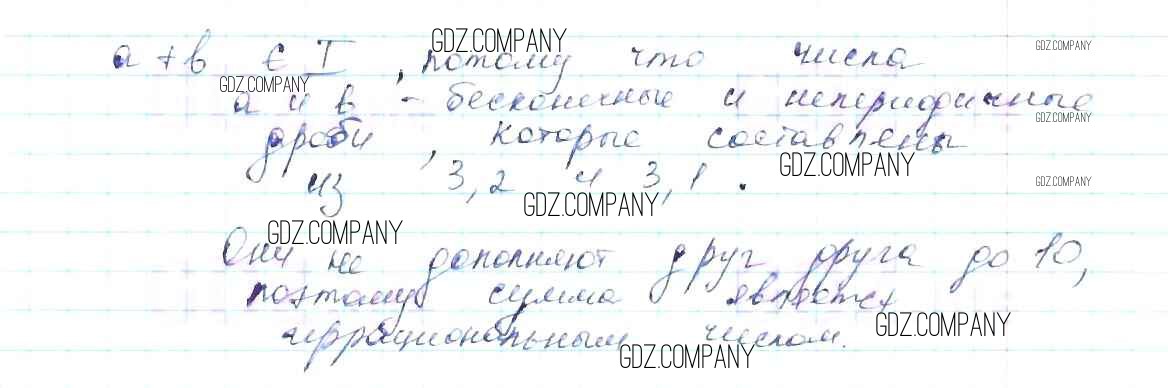 a + b ∈ I, потому что числа
a и b - бесконечные и непериодичные
дроби, которые составлены
из 3, 2 и 3, 1.
Они не дополняют друг друга до 10,
поэтому сумма является
иррациональным числом.
GDZ.COMPANY
GDZ.COMPANY
GDZ.COMPANY
GDZ.COMPANY
GDZ.COMPANY
GDZ.COMPANY
GDZ.COMPANY
GDZ.COMPANY
GDZ.COMPANY
GDZ.COMPANY